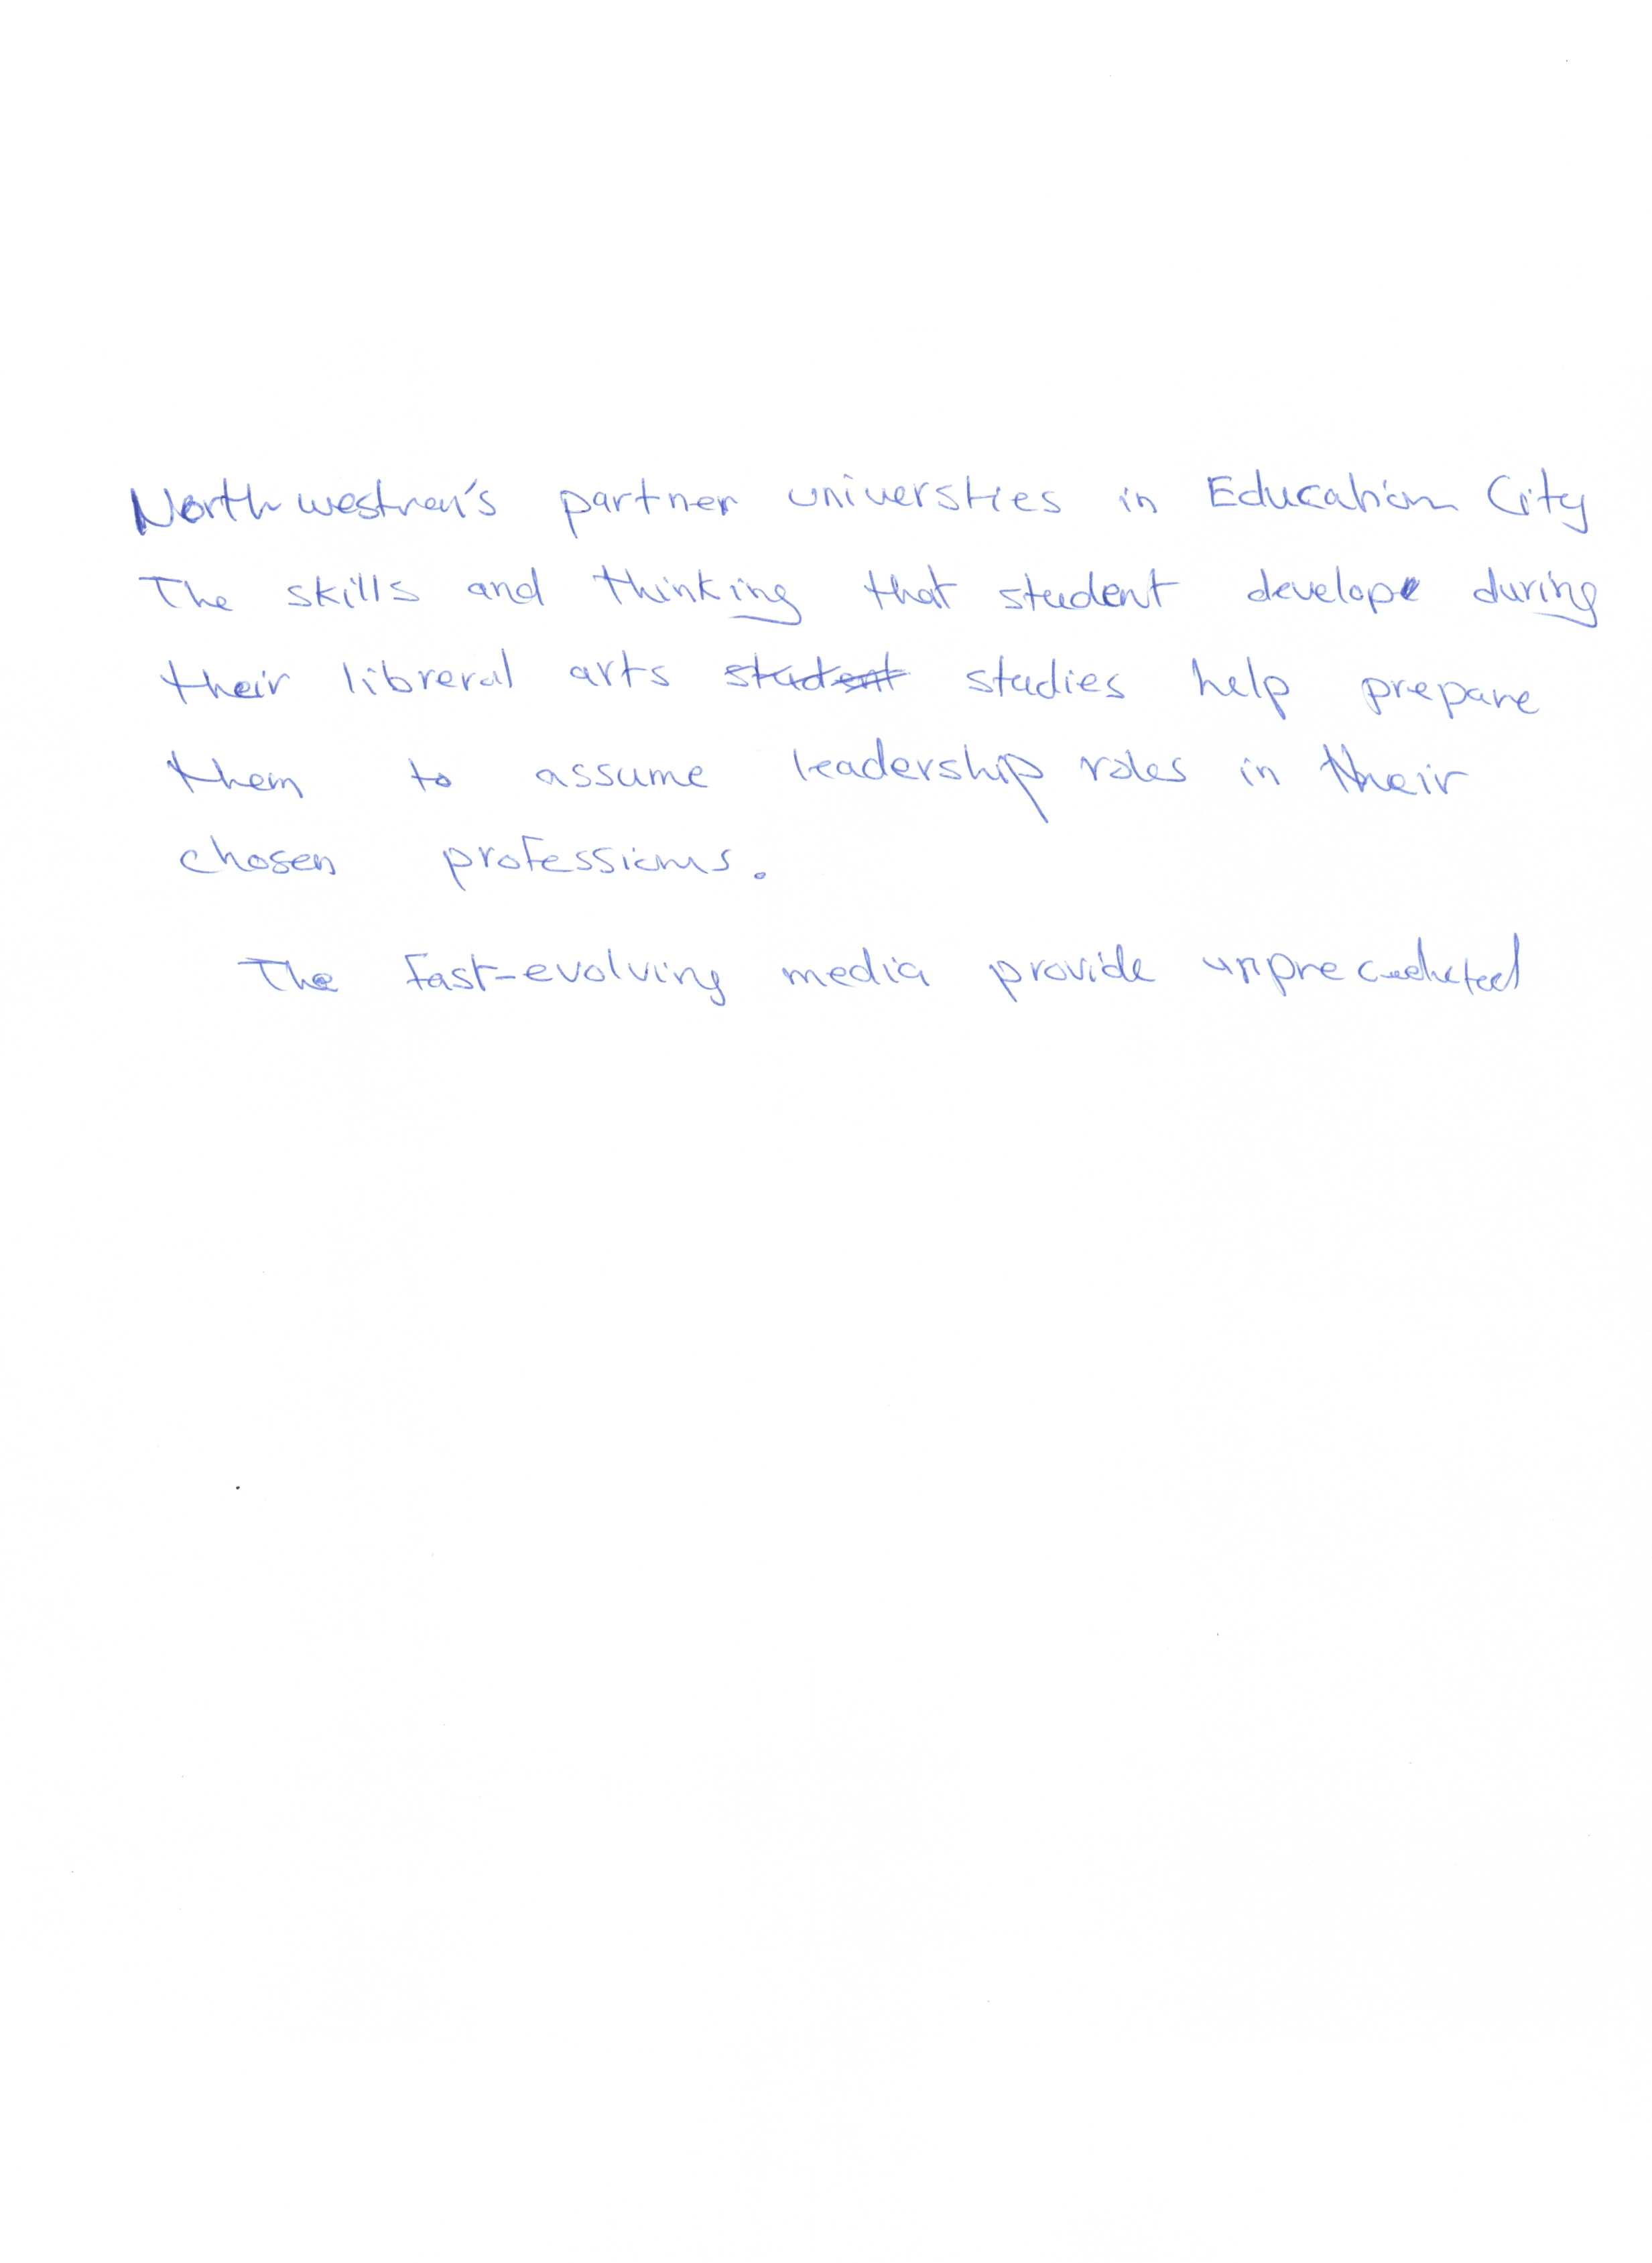 Northwestren's partner universties in Education City
The skills and thinking that student develope during
their libreral arts student studies help prepare
them to assume leadership roles in their
chosen professions.
The fast-evolving media provide